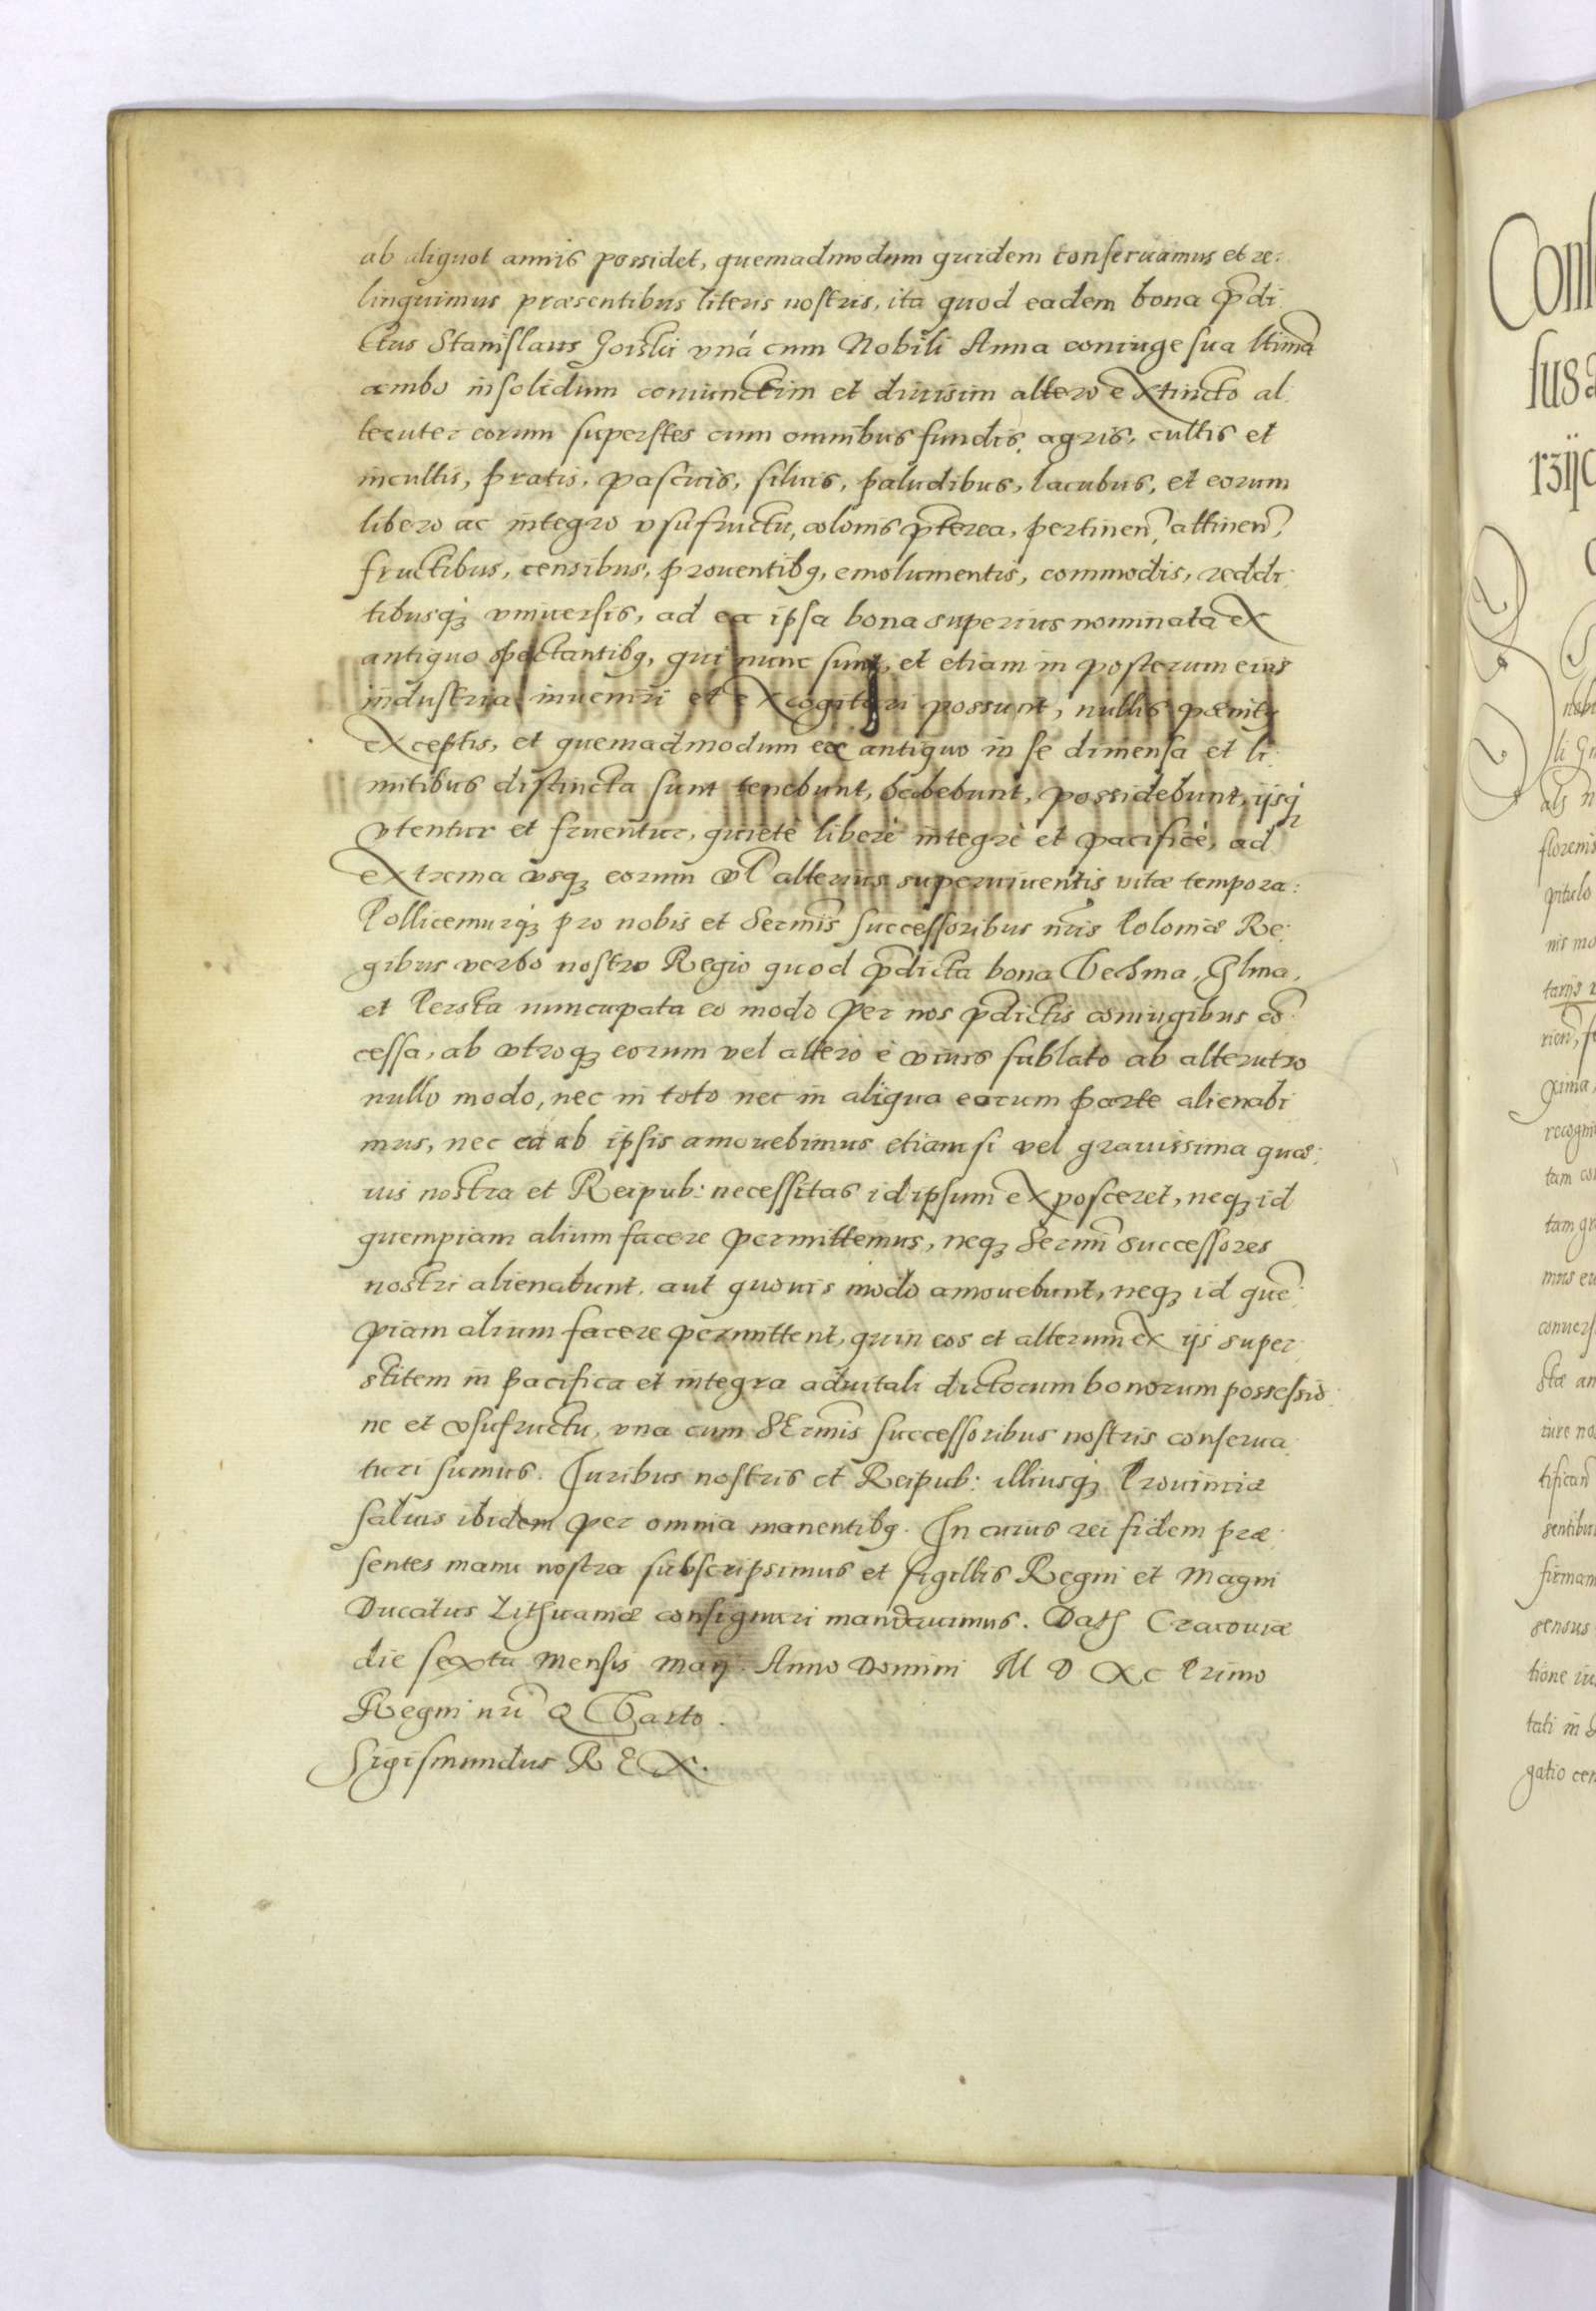 ab aliquot annis possidet, quemadmodum quidem conseruamus et re:
linquimus præsentibus literis nostris, ita quod eadem bona p̃di
ctus Stanislaus unà cum Nobili Anna coniuge sua ltima
ambo insolidum coniunctim et diuisim altero extincto al:
teruter eorum superstes cum omnibus fundis, agris, cultis et
incultis, pratis, pascuis, siluis, paludibus, lacubus, et eorum
libero ac integro vsufructu, colonis p̃terea, pertinen̄, attinen̄,
fructibus, censibus, prouentibq, emolumentis, commodis, reddi:
tibusq; vniuersis, ad ea ipsa bona superius nominata ex
antiquo spectantibq, qui nunc sunt, et etiam in posterum eius
industria inueniri et excogitari possunt, nullis pænitq
exceptis, et quemadmodum ex antiquo in se dimensa et li:
mitibus distincta sunt tenebunt, habebunt, possidebunt, ijsq;
vtentur et fruentur, quietè liberè integrè et pacificè, ad
extrema vsq; eorum vl alterius superuiuentis vitæ tempora:
Pollicemurq; pro nobis et Sermis̃ successoribus nr̃is Poloniæ Re:
gibus verbo nostro Regio quod p̃dicta bona Glma,
et Persta nuncupata eo modo per nos p̃dictis coniugibus cõ:
cessa, ab vtroq; eorum vel altero è viuis sublato ab alterutro
nullo modo, nec in toto nec in aliqua earum parte alienabi
mus, nec ea ab ipsis amouebimus etiamsi vel grauissima quæ:
uis nostra et Reipub: necessitas id ipsum exposceret, neq; id
quempiam alium facere permittemus, neq; Sermĩ successores
nostri alienabunt, aut quouis modo amouebunt, neq; id quẽ:
piam alium facere permittent, quin eos et alterum ex ijs super:
stitem in pacifica et integra aduitali dictorum bonorum possessio:
ne et vsufructu, vna cum SErmis̃ successoribus nostris conserua:
turi sumus. Juribus nostris et Reipub: illiusq; Prouinciæ
saluis ibidem per omnia manentibq. In cuius rei fidem præ:
sentes manu nostra subscripsimus et sigillis Regni et Magni
Ducatus Lithuaniæ consignari mandauimus. Dat Cracouiæ
die sexta Mensis Maij. Anno Domini M D XC Primo
Regni nr̃i Quarto.
Sigismundus REX.